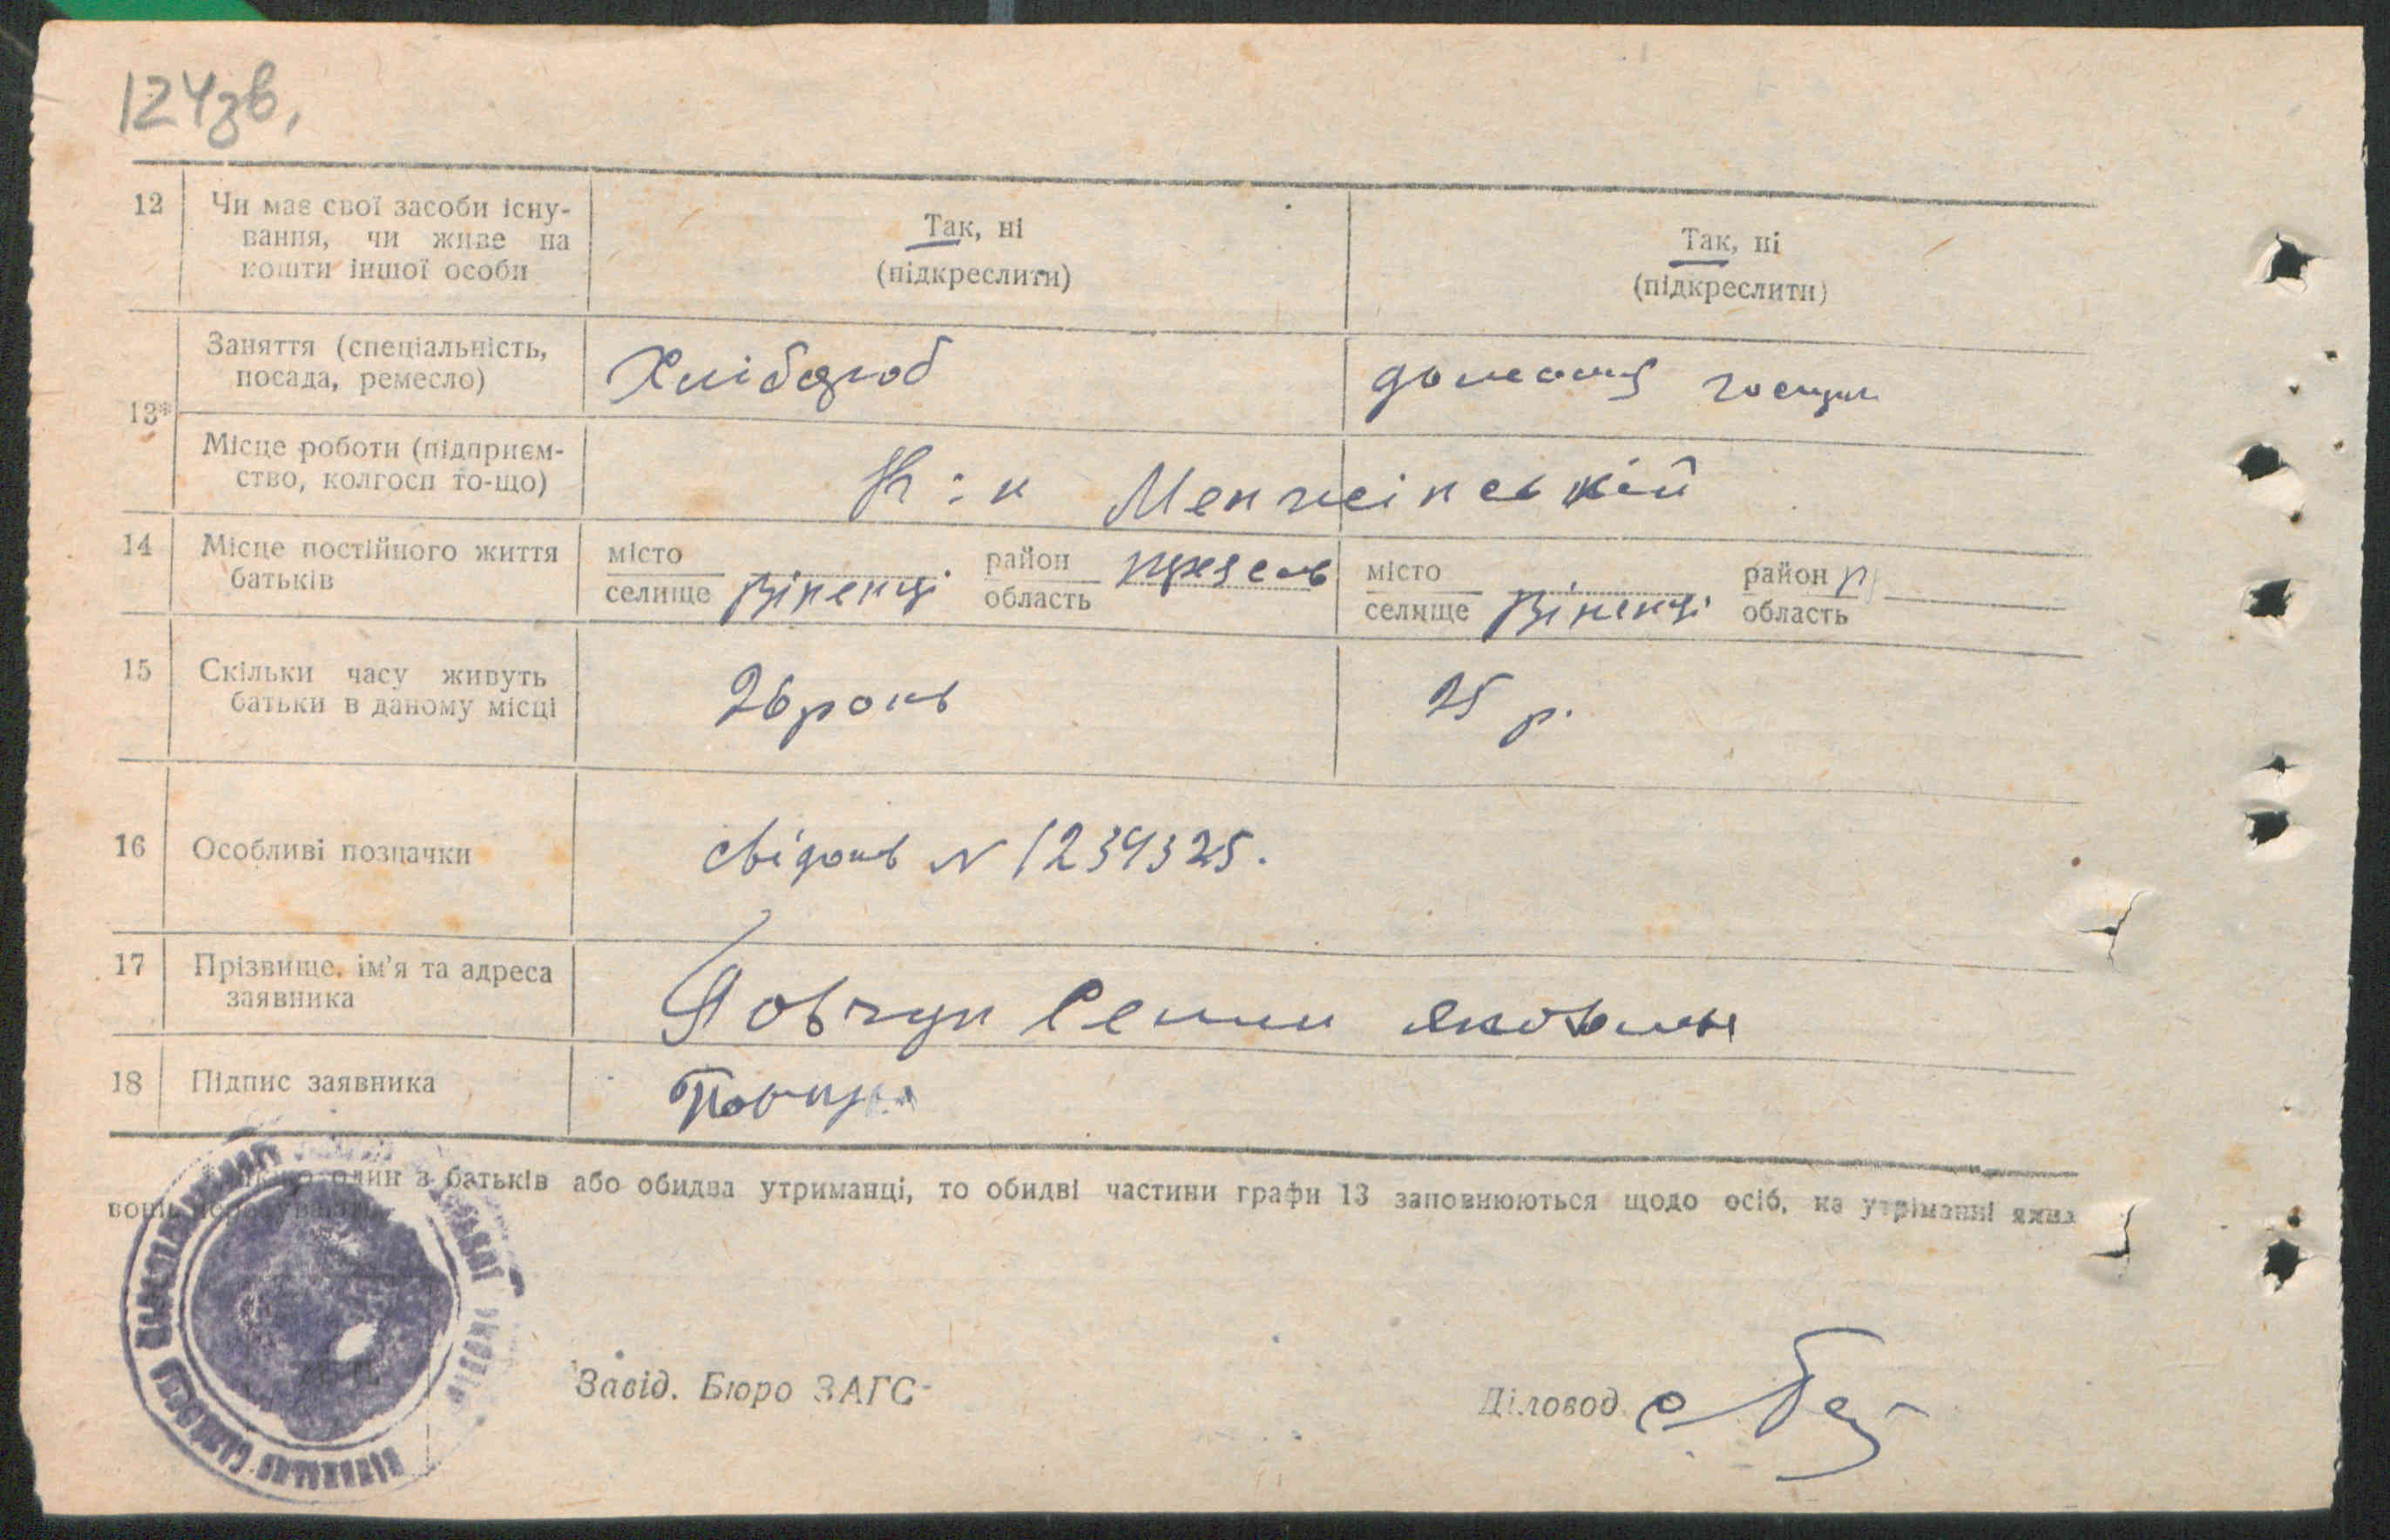 124зв.
12 Чи має свої засоби існу-
вання, чи живе на
кошти іншої особи
Так, ні
(підкреслити)
Так, ні
(підкреслити)
13*
Заняття (спеціальність,
посада, ремесло)
Хлібороб
Місце роботи (підприєм-
ство, колгосп то-що)
К:п Менжінській
14 Місце постійного життя
батьків
місто
селище Віненці
район
область
місто
селище Віненці
район
область
15 Скільки часу живуть
батьки в даному місці
26 роки
25 р.
16 Особливі позначки
свідоць N 1239325.
17 Прізвище, ім'я та адреса
заявника
Повчун Семен
18 Підпис заявника
один з батьків або обидва утриманці, то обидві частини графи 13 заповнюються щодо осіб, на утріманні яких
вони
Завід. Бюро ЗАГС
Діловод